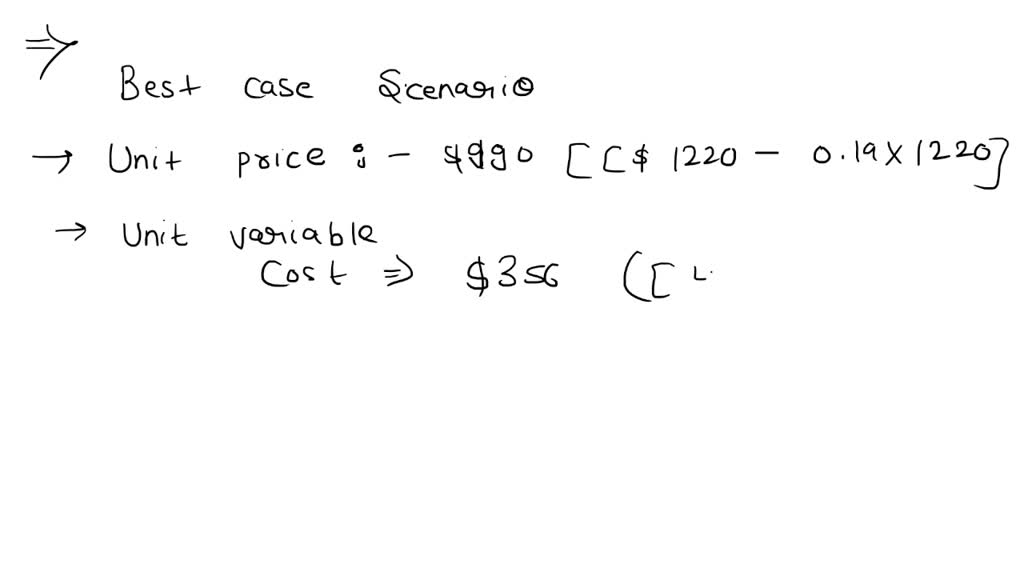 ⇒
Best case Scenario
→ Unit price :- $990 [[$ 1220 - 0.19 X 1220]
→ Unit variable
Cost ⇒ $356 ([ 4